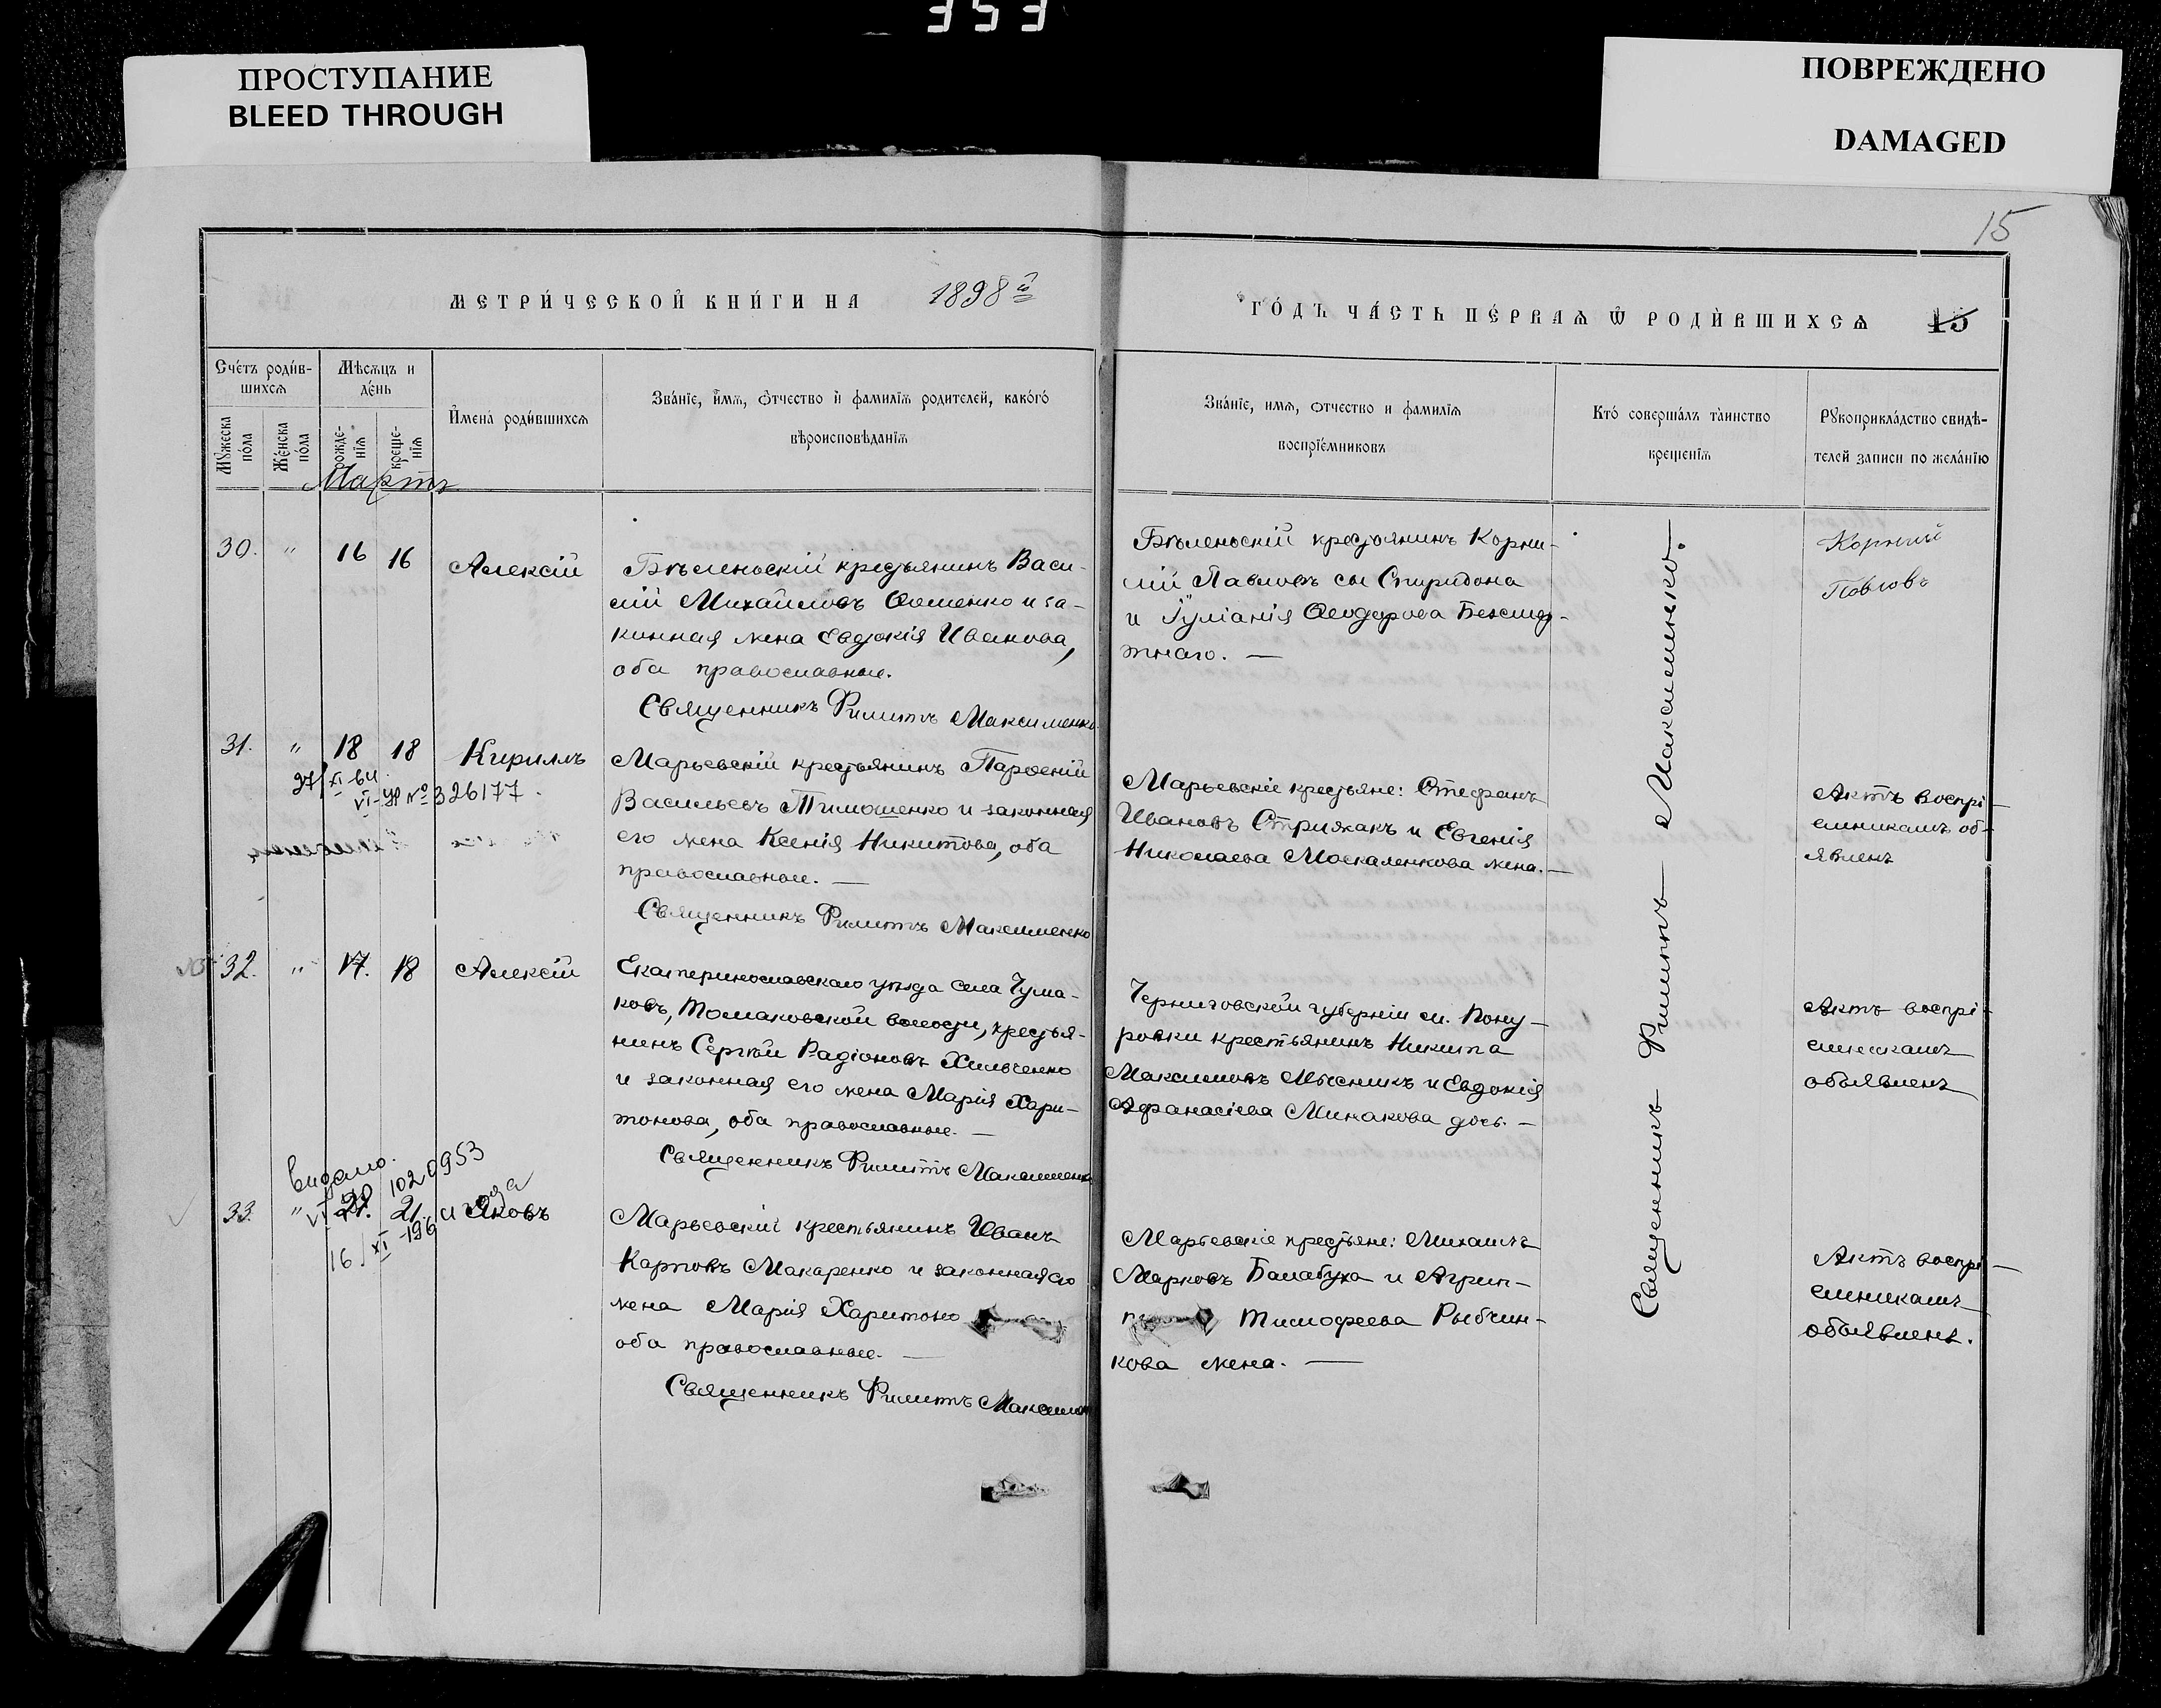 353
ПРОСТУПАНИЕ
BLEED THROUGH
ПОВРЕЖДЕНО
DAMAGED
15
МЕТРИ́ЧЕСКОЙ КНИ́ГИ НА 1898й
ГО́ДЪ ЧА́СТЬ ПЕ́РВАѦ Ѿ РОДИ́ВШИХСѦ 15
Сче́тъ роди́в-
шихсѧ
Мѣсѧцъ и
де́нь
И҆мена̀ роди́вшихсѧ
Зва́нїе, и҆́мѧ, ѻ҆́тчество и҆ фамилїѧ родителей, како́гѡ
вѣроисповѣданїѧ
Мꙋжеска
по́ла
Же́нска
по́ла
рожде-
нїѧ
креще-
нїѧ
Зва́нїе, имѧ, ѻтчество и фамилїѧ
воспрїе́мниковъ
Кто̀ соверша́лъ та́инство
креще́нїѧ
Рꙋкоприкла́дство свидѣ́-
телей записи по жела́нїю
Мартъ
30. " 16 16 Алексій
Бѣленьскій крестьянинъ Васи-
лій Михайловъ и за-
конная жена Евдокія Иванова,
оба православные.
Священникъ Филиппъ Максименко
Бѣленьскій крестьянинъ Корни-
лій Павловъ сы Спиридона
и Іуліанія Ѳеодорова
Корнилій
Павловъ
31. " 18 18 Кириллъ
27/XI-64.
VI-УР № 326177.
Марьевскій крестьянинъ Парѳеній
Васильевъ Тимошенко и законная
его жена Ксенія Никитова, оба
православные. —
Священникъ Филиппъ Максименко
Марьевскіе крестьяне: Стефанъ
Ивановъ Стрижакъ и Евгенія
Николаева Москаленкова жена. —
Актъ воспрі-
емникамъ об-
явленъ
32. " 17. 18 Алексій
Екатеринославскаго уѣзда села Чума-
ковъ, Томаковской волости, крестья-
нинъ Сергѣй Радіоновъ Хильченко
и законная его жена Марія Хари-
тонова, оба православные. —
Священникъ Филиппъ Максименко
Черниговской губерніи м. Пону-
ровки крестьянинъ Никита
Максимовъ Мѣсникъ и Евдокія
Аѳанасіева Минакова дочь. —
Актъ воспрі-
емникамъ
объявленъ
Видано.
1020953
33. " 21. Яковъ
16/XI-196
Марьевскій крестьянинъ Иванъ
Карповъ Макаренко и законная его
жена Марія Харитоно
оба православные. —
Священникъ Филиппъ Максимен
Марьевскіе крестьяне: Михаилъ
Марковъ Балабуха и Агрип-
Тимофеева Рыбчин-
кова жена. —
Актъ воспрі-
емникамъ
объявленъ.
Священникъ Филиппъ Максименко.